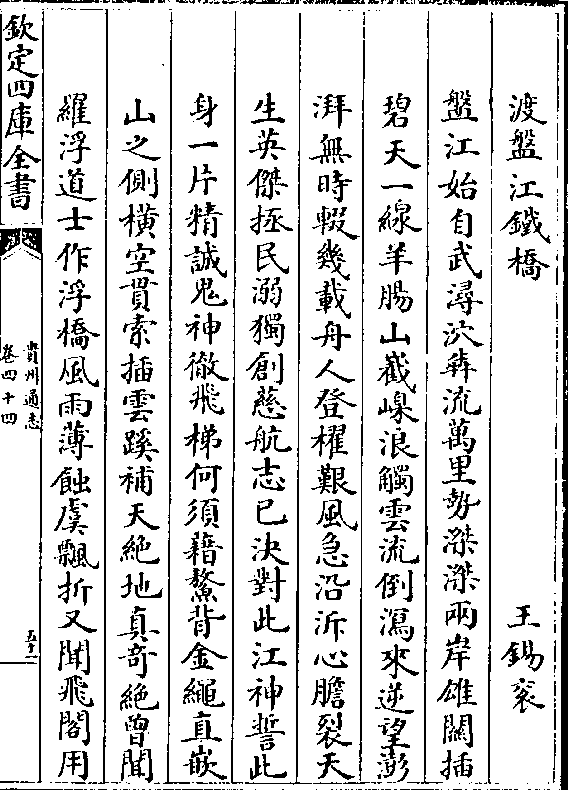 渡盤江鐵橋　王錫衮
盤江始自武潯次犇流萬里勢滐滐兩岸雄關插
碧天一線羊腸山巀嵲浪觸雲流倒瀉來逆望澎
湃無時輟幾載舟人登櫂艱風急沿泝心膽裂天
生英傑拯民溺獨創慈航志已決對此江神誓此
身一片精誠鬼神徹飛梯何須藉鰲背金繩直嵌
山之側橫空貫索插雲蹊補天絶地真奇絶曾聞
羅浮道士作浮橋風雨薄蝕虞飄折又聞飛閣用
欽定四庫全書
貴州通志
卷四十四
五十一